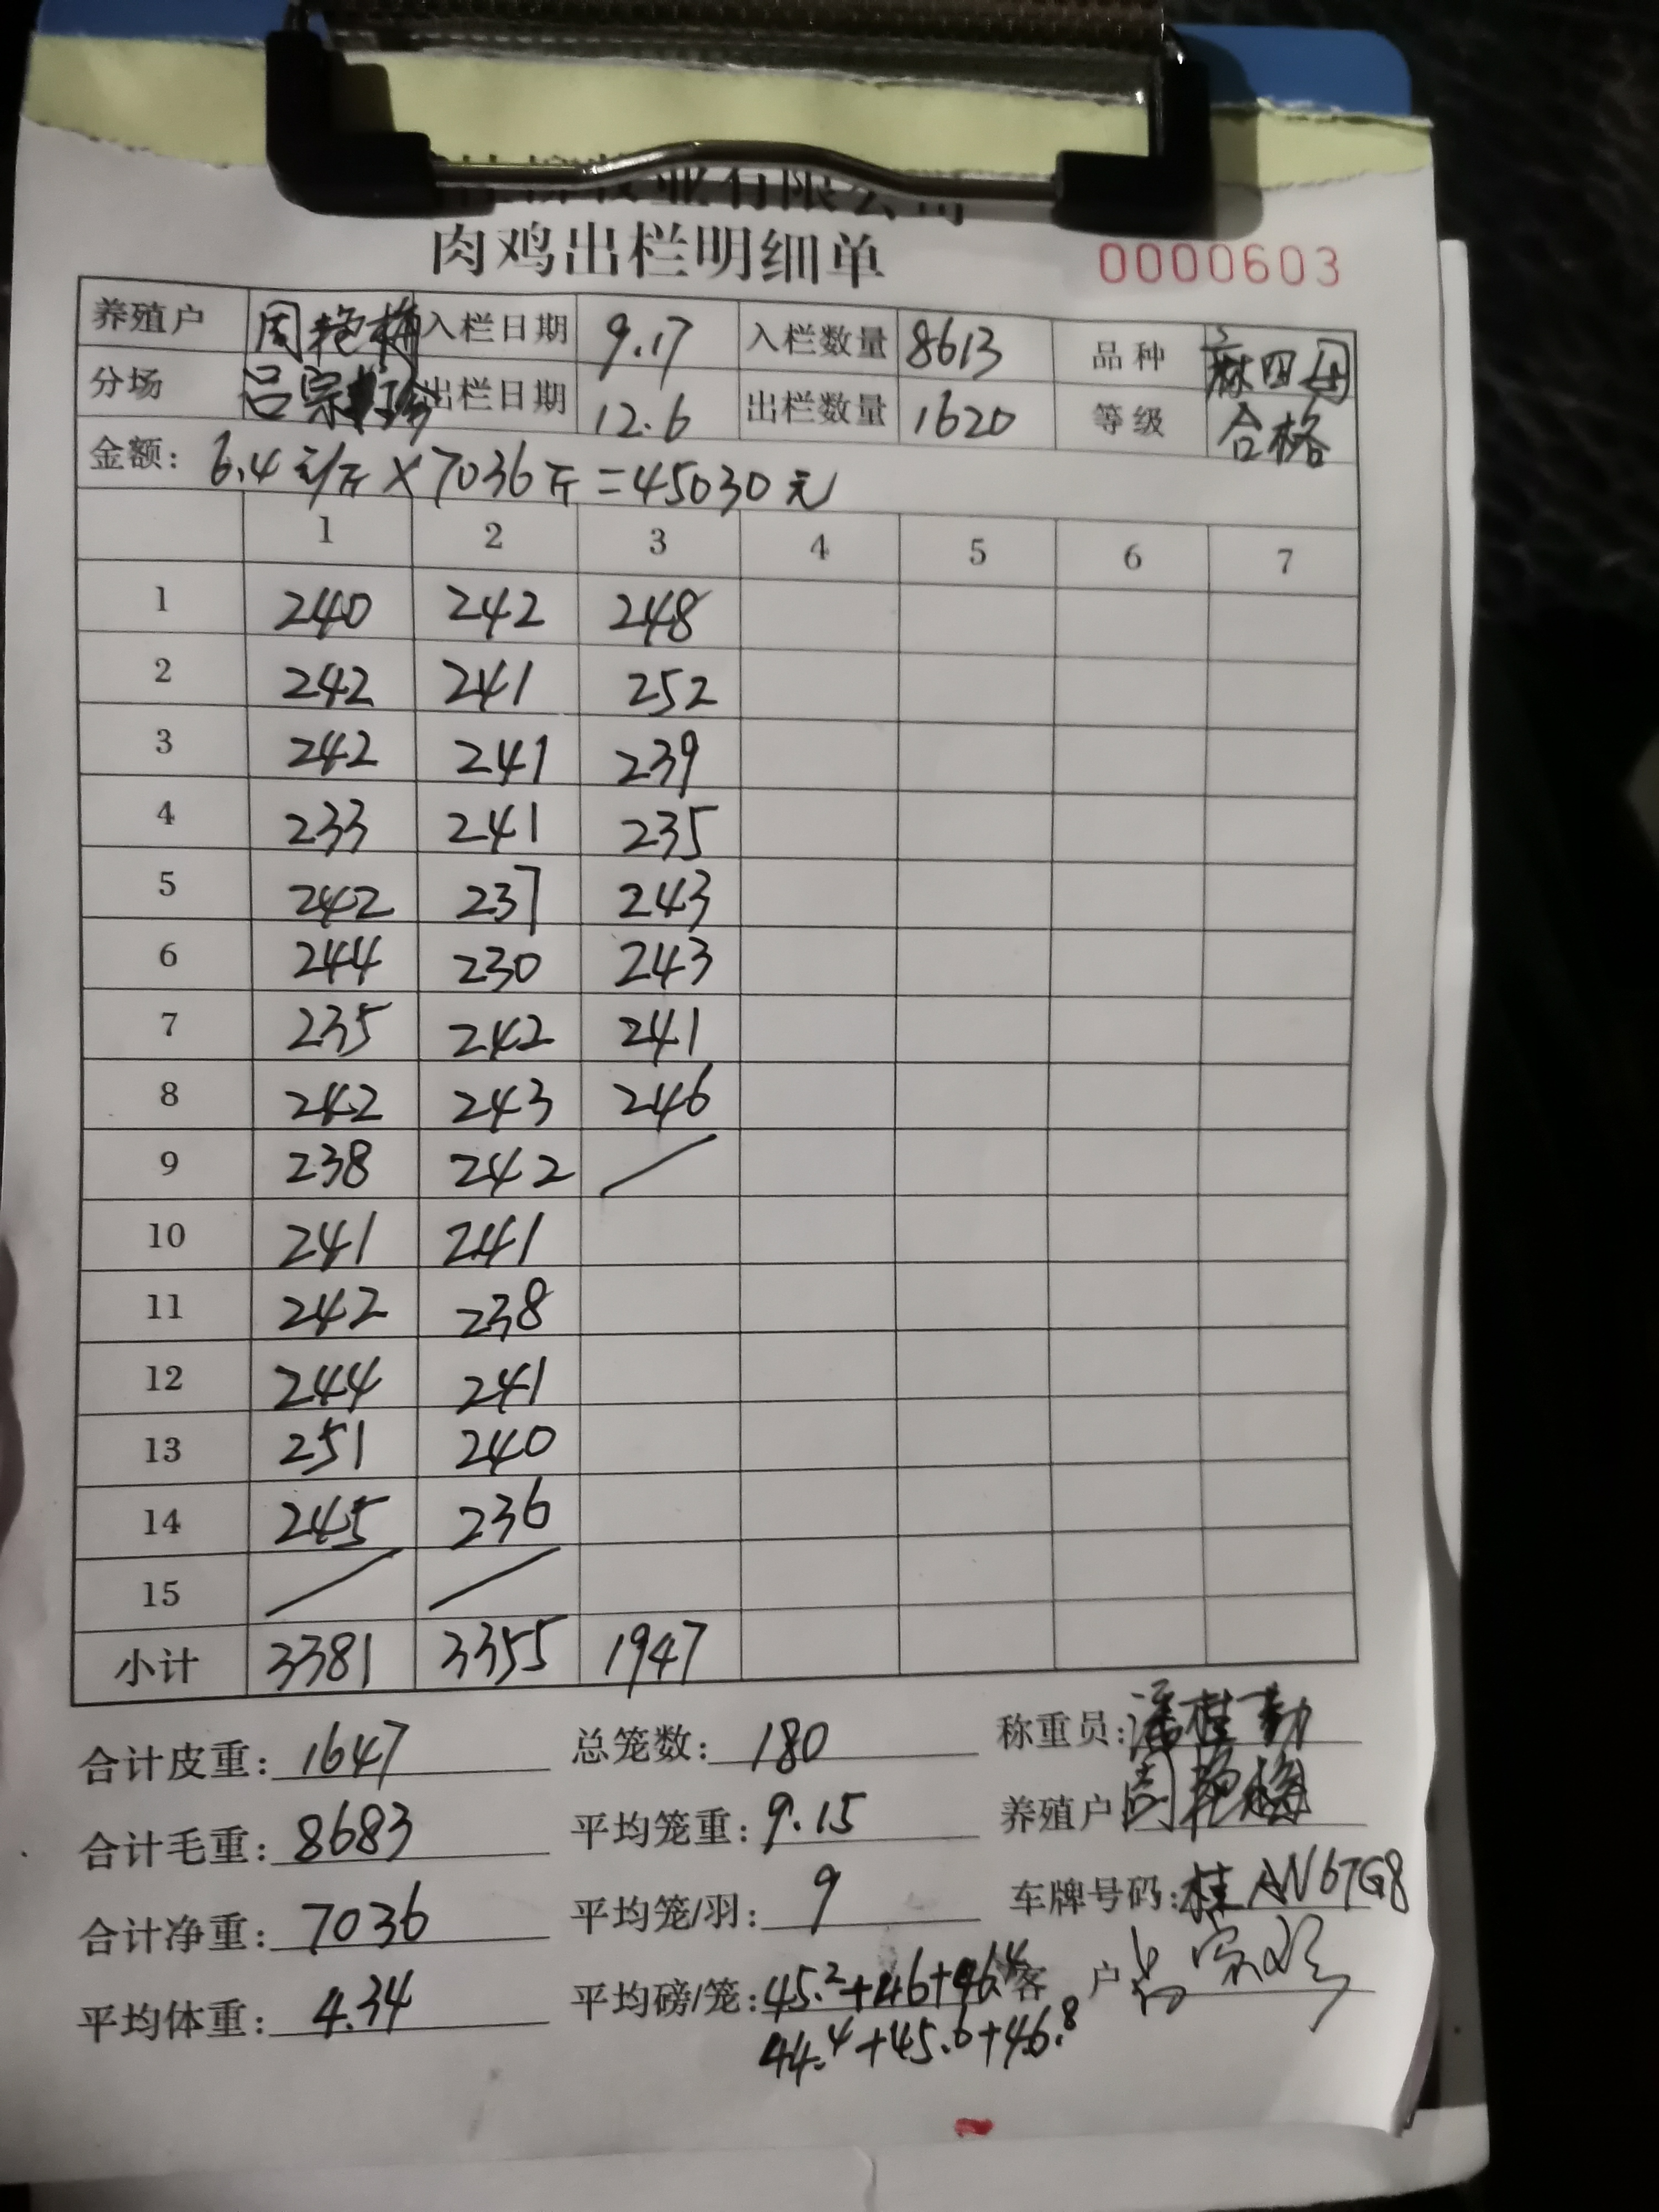 牧业有限公司
肉鸡出栏明细单 0000603
养殖户 周艳梅 入栏日期 9.17 入栏数量 8613 品种 麻四母
分场 吕宗 出栏日期 12.6 出栏数量 1620 等级 合格
金额: 6.4元/斤×7036斤=45030元
1 2 3 4 5 6 7
1 240 242 248
2 242 241 252
3 242 241 239
4 233 241 235
5 242 237 243
6 244 230 243
7 235 242 241
8 242 243 246
9 238 242 /
10 241 241
11 242 238
12 244 241
13 251 240
14 245 236
15 / /
小计 3381 3355 1947
合计皮重: 1647 总笼数: 180 称重员: 潘桂勤
合计毛重: 8683 平均笼重: 9.15 养殖户 周艳梅
合计净重: 7036 平均笼/羽: 9 车牌号码: 桂AN67G8
平均体重: 4.34 平均磅/笼: 45.2+46+46.4 客户
44.4+45.6+46.8